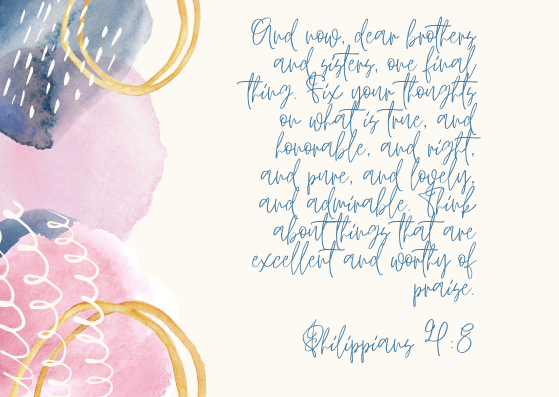 And now, dear brothers
and sisters, one final
thing. Fix your thoughts
on what is true, and
honorable, and right,
and pure, and lovely,
and admirable. Think
about things that are
excellent and worthy of
praise.
Philippians 4:8